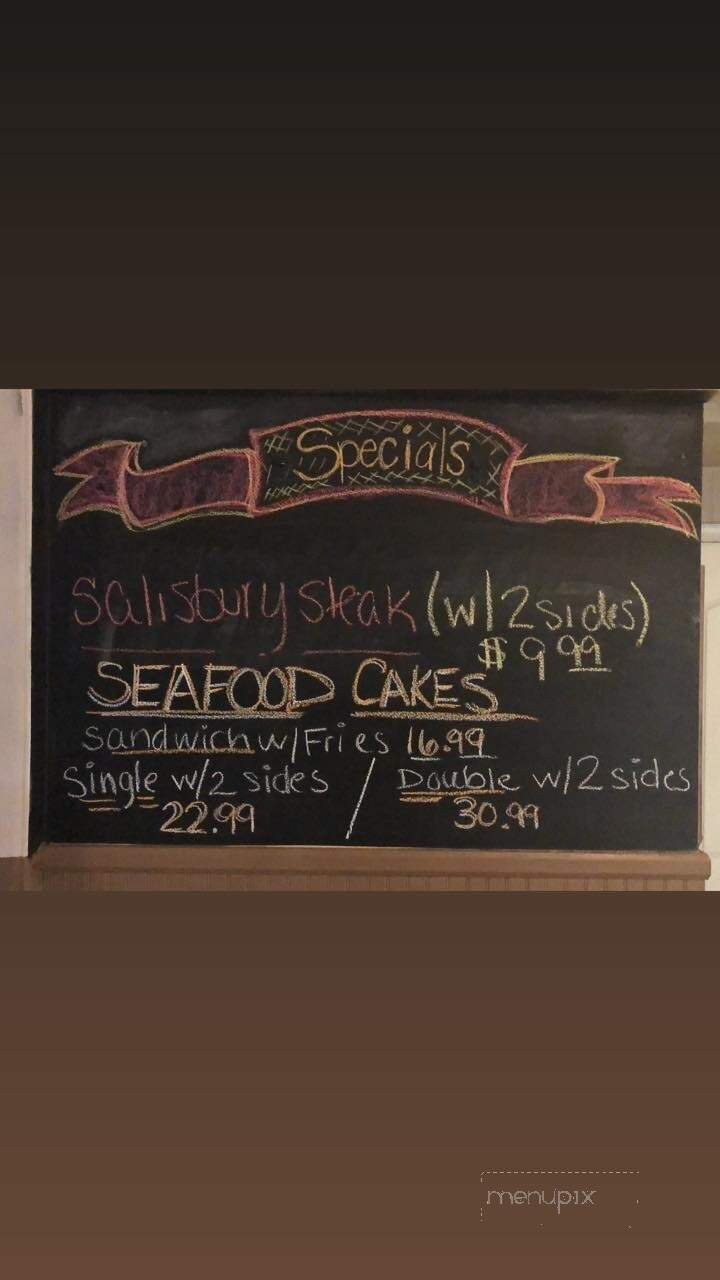 Specials
Salisbury Steak (w/2 sides)
$ 9 99
SEAFOOD CAKES
Sandwich w/Fries 16.99
Single w/2 sides / Double w/2 sides
22.99 30.99
menupix